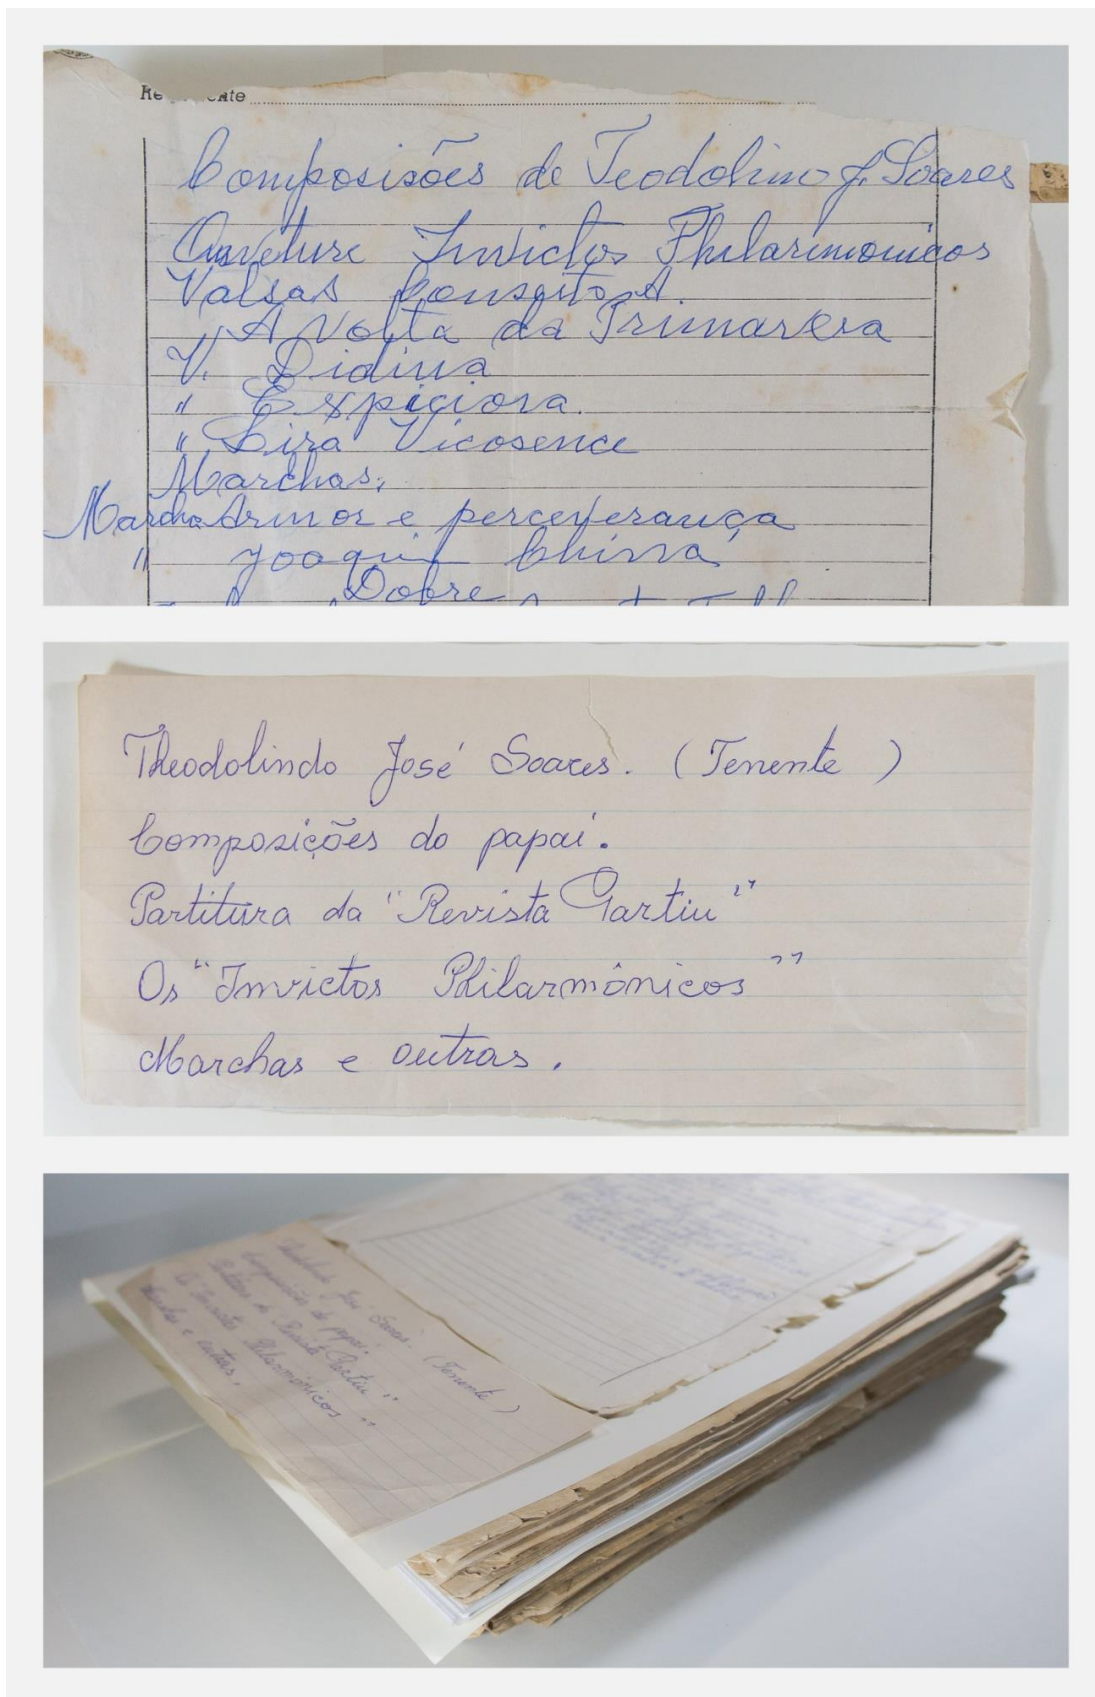 Composisões de Teodolino J. Soares
Ouveture Invictos Philarimonicos
Valsas Conseito A.
" A Volta da Primavera
V. Didina
" Expiciora.
" Lira Vicosence
Marchas,
Marcha Armor e perceverança
" Joaquim Chinna
Dobre
Theodolindo José Soares. (Tenente)
Composições do papai.
Partitura da "Revista Gartiu"
Os "Invictos Philarmônicos"
Marchas e outras.
José Soares. (Tenente)
Composições do papai.
Partitura da "Revista Gartiu"
Os "Invictos Philarmônicos"
Marchas e outras.